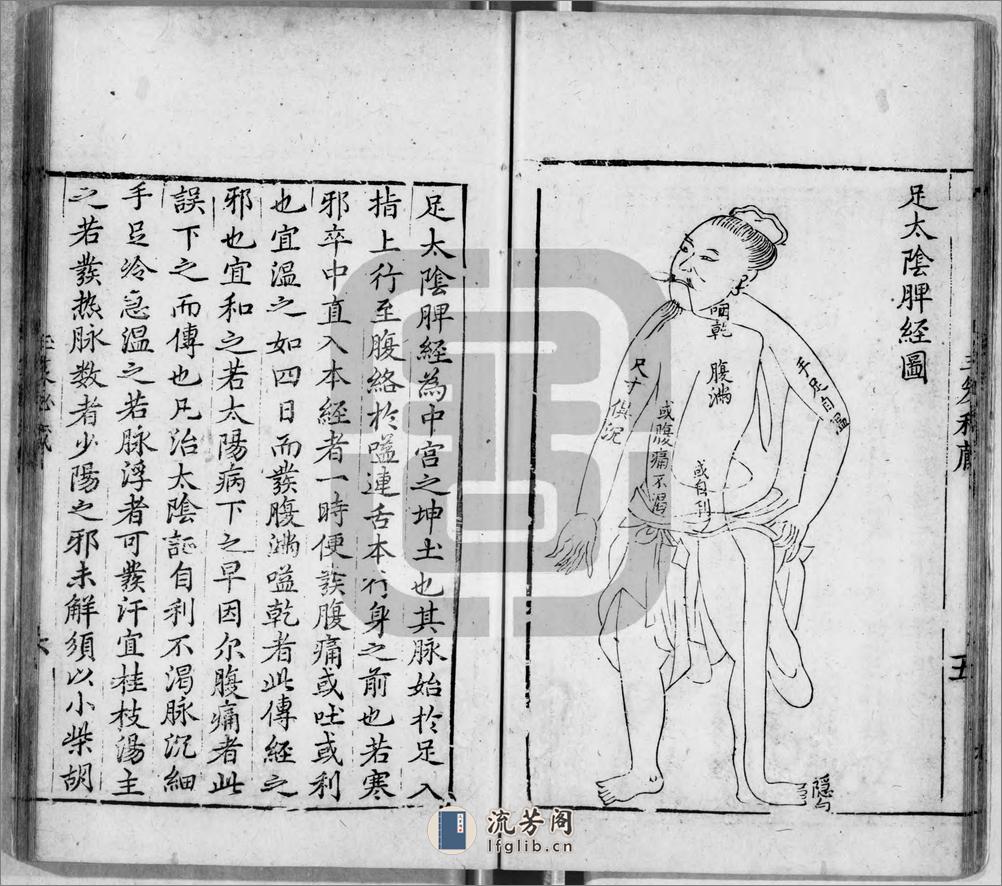 足太陰脾經圖
咽乾
腹滿
手足自溫
尺寸
俱沉
或腹痛不渴
或自利
隱白
五
足太陰脾經為中宫之坤土也其脉始於足大
指上行至腹絡於嗌連舌本行身之前也若寒
邪卒中直入本經者一時便發腹痛或吐或利
也宜溫之如四日而發腹滿嗌乾者此傳經之
邪也宜和之若太陽病下之早因尔腹痛者此
誤下之而傳也凡治太陰証自利不渴脉沉細
手足冷急溫之若脉浮者可發汗宜桂枝湯主
之若發热脉数者少陽之邪未解須以小柴胡
流芳阁
lfglib.cn